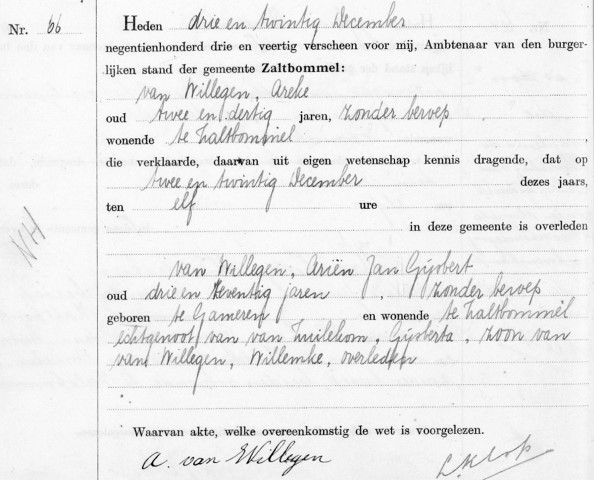 Nr. 66
Heden drie en twintig December
negentienhonderd drie en veertig verscheen voor mij, Ambtenaar van den burger-
lijken stand der gemeente Zaltbommel:
van Willegen, Areke
oud twee en dertig jaren, zonder beroep
wonende te Zaltbommel
die verklaarde, daarvan uit eigen wetenschap kennis dragende, dat op
twee en twintig December dezes jaars,
ten elf ure
in deze gemeente is overleden
NH
van Willegen, Ariën Jan Gijsbert
oud drie en zeventig jaren, zonder beroep
geboren te Gameren en wonende te Zaltbommel
echtgenoot van van Tuilekom, Gijsberta, zoon van
van Willegen, Willemke, overleden
Waarvan akte, welke overeenkomstig de wet is voorgelezen.
A. van Willegen